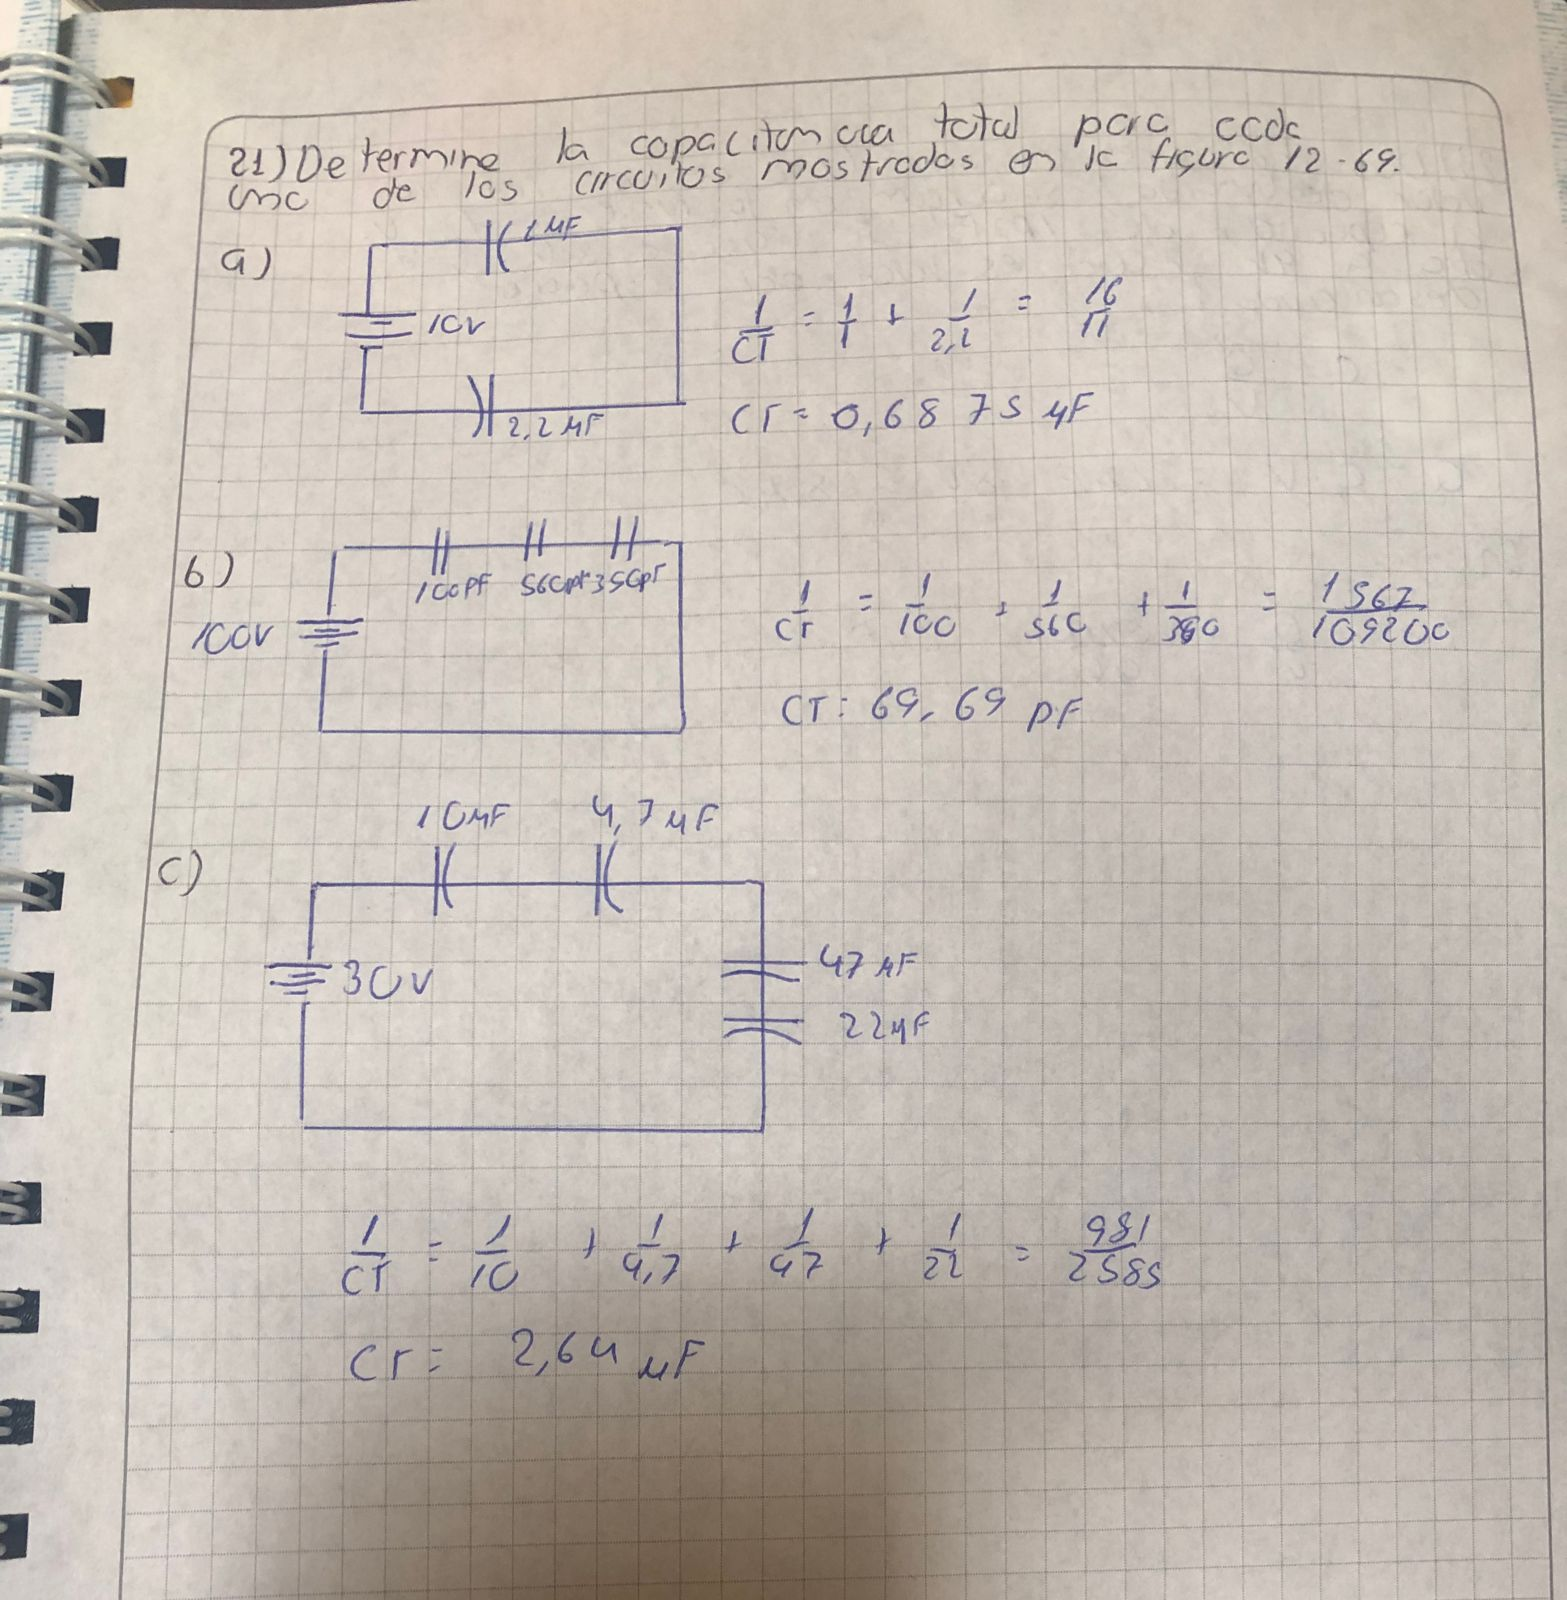 21) Determine la capacitancia total para cada
una de los circuitos mostrados en la figura 12-69.
a)
1 μF
10V
2,2 μF
1/CT = 1/1 + 1/2,2 = 16/11
CT = 0,6875 μF
b)
100pF 560pF 350pF
100V
1/CT = 1/100 + 1/560 + 1/390 = 1567/109200
CT: 69,69 pF
c)
10μF 4,7μF
30V
47μF
22μF
1/CT = 1/10 + 1/4,7 + 1/47 + 1/22 = 981/2585
CT = 2,64 μF